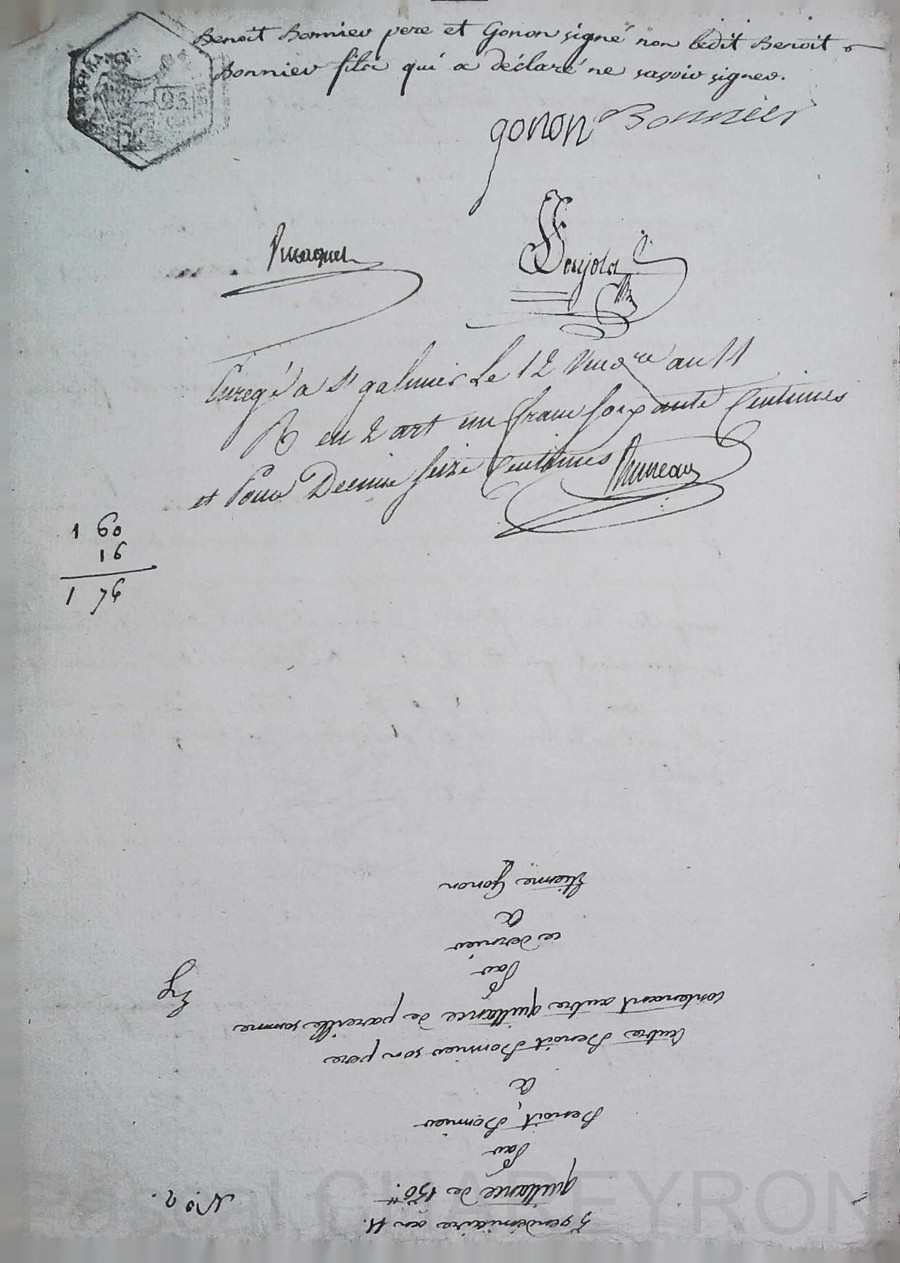 Benoit Bonnier pere et Gonon signé non ledit Benoit
Bonnier fils qui a déclaré ne savoir signer.
gonon Bonnier
25
Enregé a St galmier Le 12 an 11
R en 2 art un franc soixante Centimes
et Pour Decime seize Centimes Bruneau
1 60
16
1 76
3 vendemiaire an 11.
N.o 2.
quittance de 150.tt
Par
Benoit Bonnier
a
autre Benoit Bonnier son pere
contenant autre quittance de pareille somme
Par
ce dernier
a
Etienne Gonon
Pascal CHAREYRON